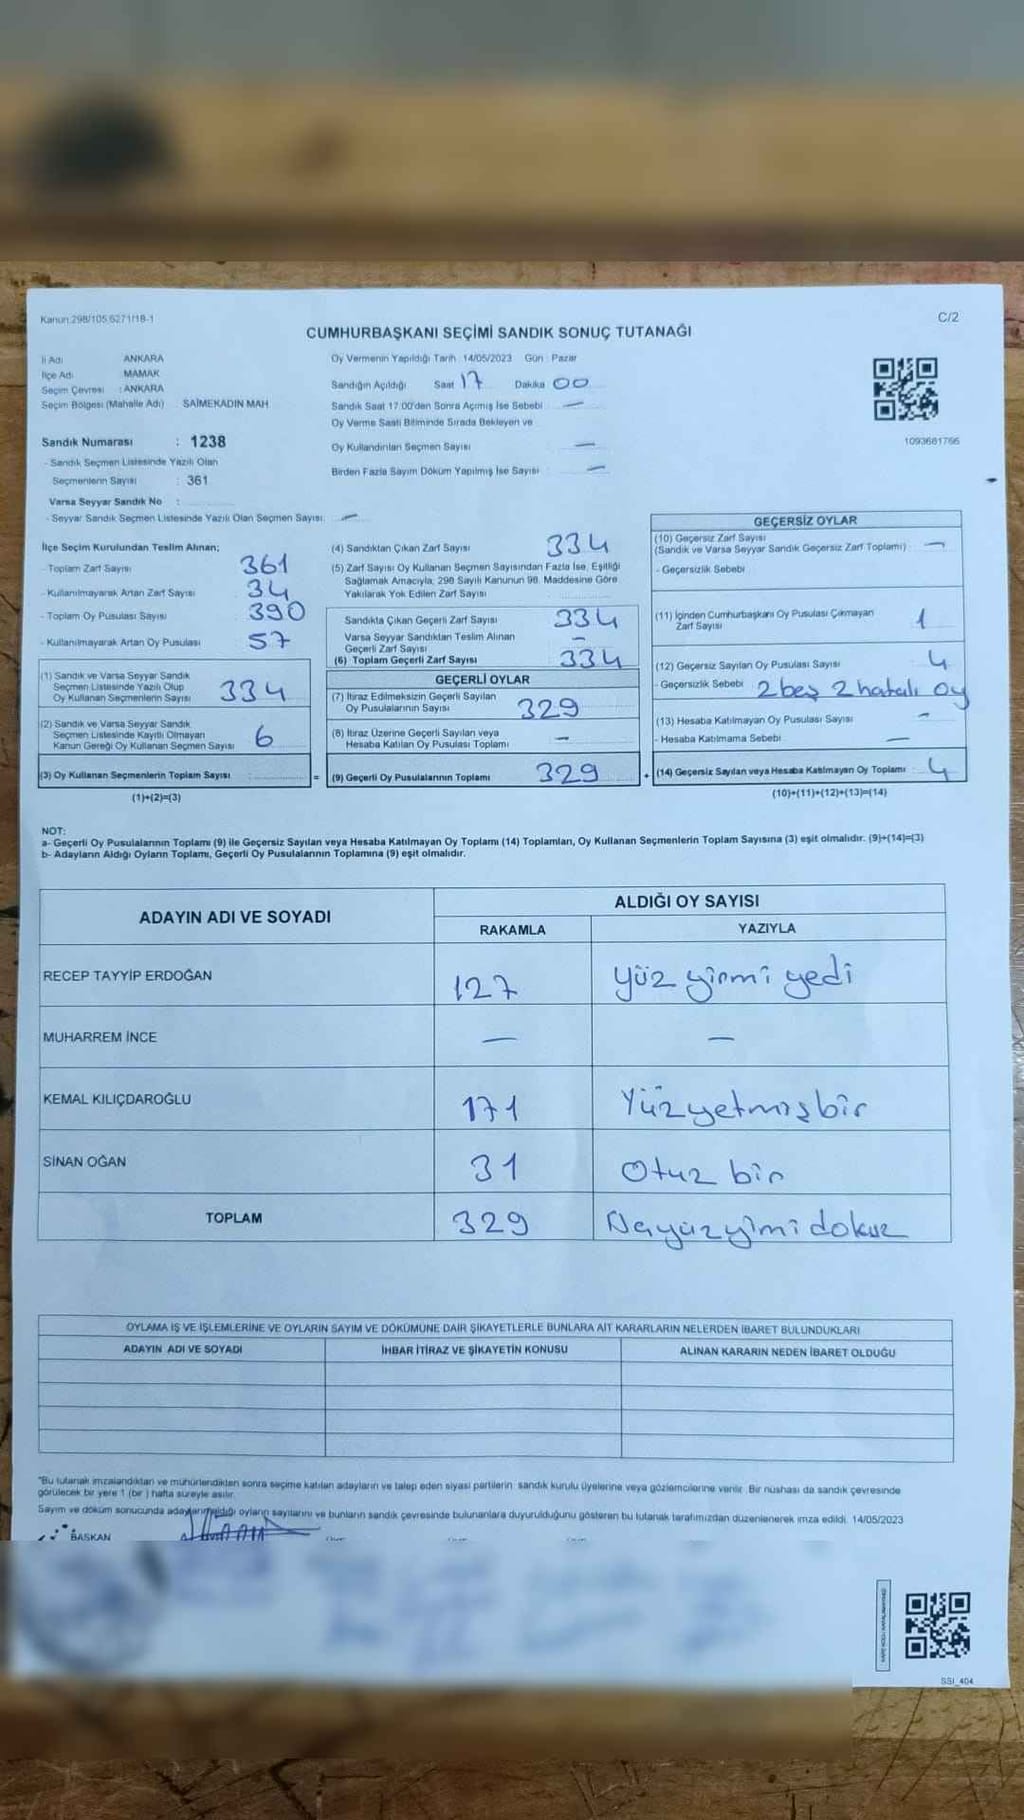 Kanun:298/105,6271/18-1
C/2
CUMHURBAŞKANI SEÇİMİ SANDIK SONUÇ TUTANAĞI
İl Adı ANKARA
İlçe Adı MAMAK
Seçim Çevresi : ANKARA
Seçim Bölgesi (Mahalle Adı) SAİMEKADIN MAH
Oy Vermenin Yapıldığı Tarih : 14/05/2023 Gün : Pazar
Sandığın Açıldığı Saat 17 Dakika 00
Sandık Saat 17:00'den Sonra Açımış İse Sebebi —
Oy Verme Saati Bitiminde Sırada Bekleyen ve
Oy Kullandırılan Seçmen Sayısı —
Birden Fazla Sayım Döküm Yapılmış İse Sayısı —
1093681766
Sandık Numarası : 1238
- Sandık Seçmen Listesinde Yazılı Olan
Seçmenlerin Sayısı : 361
Varsa Seyyar Sandık No :
- Seyyar Sandık Seçmen Listesinde Yazılı Olan Seçmen Sayısı: —
İlçe Seçim Kurulundan Teslim Alınan;
- Toplam Zarf Sayısı 361
- Kullanılmayarak Artan Zarf Sayısı 34
- Toplam Oy Pusulası Sayısı 390
- Kullanılmayarak Artan Oy Pusulası 57
(1) Sandık ve Varsa Seyyar Sandık
Seçmen Listesinde Yazılı Olup
Oy Kullanan Seçmenlerin Sayısı 334
(2) Sandık ve Varsa Seyyar Sandık
Seçmen Listesinde Kayıtlı Olmayan
Kanun Gereği Oy Kullanan Seçmen Sayısı 6
(3) Oy Kullanan Seçmenlerin Toplam Sayısı =
(1)+(2)=(3)
(4) Sandıktan Çıkan Zarf Sayısı 334
(5) Zarf Sayısı Oy Kullanan Seçmen Sayısından Fazla İse, Eşitliği
Sağlamak Amacıyla, 298 Sayılı Kanunun 98. Maddesine Göre
Yakılarak Yok Edilen Zarf Sayısı
Sandıkta Çıkan Geçerli Zarf Sayısı 334
Varsa Seyyar Sandıktan Teslim Alınan
Geçerli Zarf Sayısı —
(6) Toplam Geçerli Zarf Sayısı 334
GEÇERLİ OYLAR
(7) İtiraz Edilmeksizin Geçerli Sayılan
Oy Pusulalarının Sayısı 329
(8) İtiraz Üzerine Geçerli Sayılan veya
Hesaba Katılan Oy Pusulası Toplamı —
(9) Geçerli Oy Pusulalarının Toplamı 329
GEÇERSİZ OYLAR
(10) Geçersiz Zarf Sayısı
(Sandık ve Varsa Seyyar Sandık Geçersiz Zarf Toplamı) —
- Geçersizlik Sebebi
(11) İçinden Cumhurbaşkanı Oy Pusulası Çıkmayan
Zarf Sayısı 1
(12) Geçersiz Sayılan Oy Pusulası Sayısı 4
- Geçersizlik Sebebi 2 beş 2 hatalı oy
(13) Hesaba Katılmayan Oy Pusulası Sayısı —
- Hesaba Katılmama Sebebi —
(14) Geçersiz Sayılan veya Hesaba Katılmayan Oy Toplamı 4
(10)+(11)+(12)+(13)=(14)
NOT:
a- Geçerli Oy Pusulalarının Toplamı (9) ile Geçersiz Sayılan veya Hesaba Katılmayan Oy Toplamı (14) Toplamları, Oy Kullanan Seçmenlerin Toplam Sayısına (3) eşit olmalıdır. (9)+(14)=(3)
b- Adayların Aldığı Oyların Toplamı, Geçerli Oy Pusulalarının Toplamına (9) eşit olmalıdır.
ADAYIN ADI VE SOYADI ALDIĞI OY SAYISI
RAKAMLA YAZIYLA
RECEP TAYYİP ERDOĞAN 127 Yüz yirmi yedi
MUHARREM İNCE — —
KEMAL KILIÇDAROĞLU 171 Yüzyetmişbir
SİNAN OĞAN 31 Otuz bir
TOPLAM 329
OYLAMA İŞ VE İŞLEMLERİNE VE OYLARIN SAYIM VE DÖKÜMÜNE DAİR ŞİKAYETLERLE BUNLARA AİT KARARLARIN NELERDEN İBARET BULUNDUKLARI
ADAYIN ADI VE SOYADI İHBAR İTİRAZ VE ŞİKAYETİN KONUSU ALINAN KARARIN NEDEN İBARET OLDUĞU
*Bu tutanak imzalandıktan ve mühürlendikten sonra seçime katılan adayların ve talep eden siyasi partilerin sandık kurulu üyelerine veya gözlemcilerine verilir. Bir nüshası da sandık çevresinde
görülecek bir yere 1 (bir ) hafta süreyle asılır.
Sayım ve döküm sonucunda adayların aldığı oyların sayılarını ve bunların sandık çevresinde bulunanlara duyurulduğunu gösteren bu tutanak tarafımızdan düzenlenerek imza edildi. 14/05/2023
BAŞKAN
SSI_404